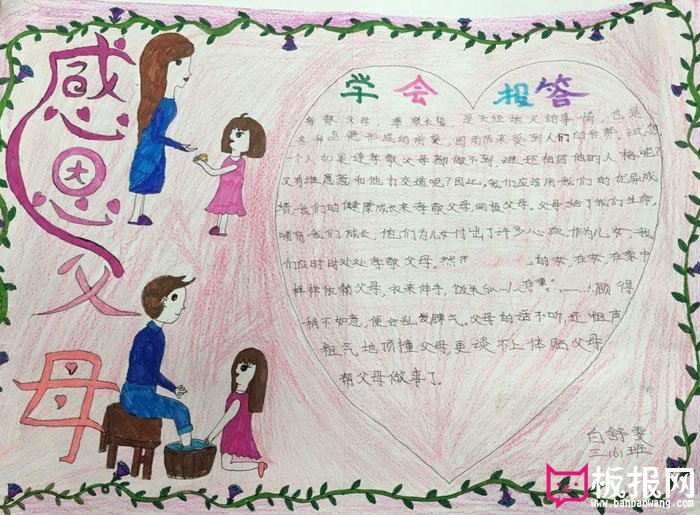 感恩父母
学会报答
孝敬父母,尊敬长辈,是天经地义的事情,也是
各种品德形成的前提,因而历来受到人们的称赞。试想,
一个人如果连孝敬父母都做不到,谁还相信他的人格呢?
又有谁愿意和他打交道呢?因此,我们应该用我们的优异成
绩,我们的健康成长来孝敬父母,回报父母。父母给了我们生命,
哺育我们成长,他们为儿女付出了许多心血,作为儿女,我
们应时时处处孝敬父母。然而 的女,在女,在家中
样样依赖父母,衣来伸手,饭来 顾得
稍不如意,便会乱发脾气。父母的话不听,还粗声
粗气地顶撞父母,更谈不上体贴父母
帮父母做事了。
白舒雯
三(6)班
板报网
www.banbaowang.com